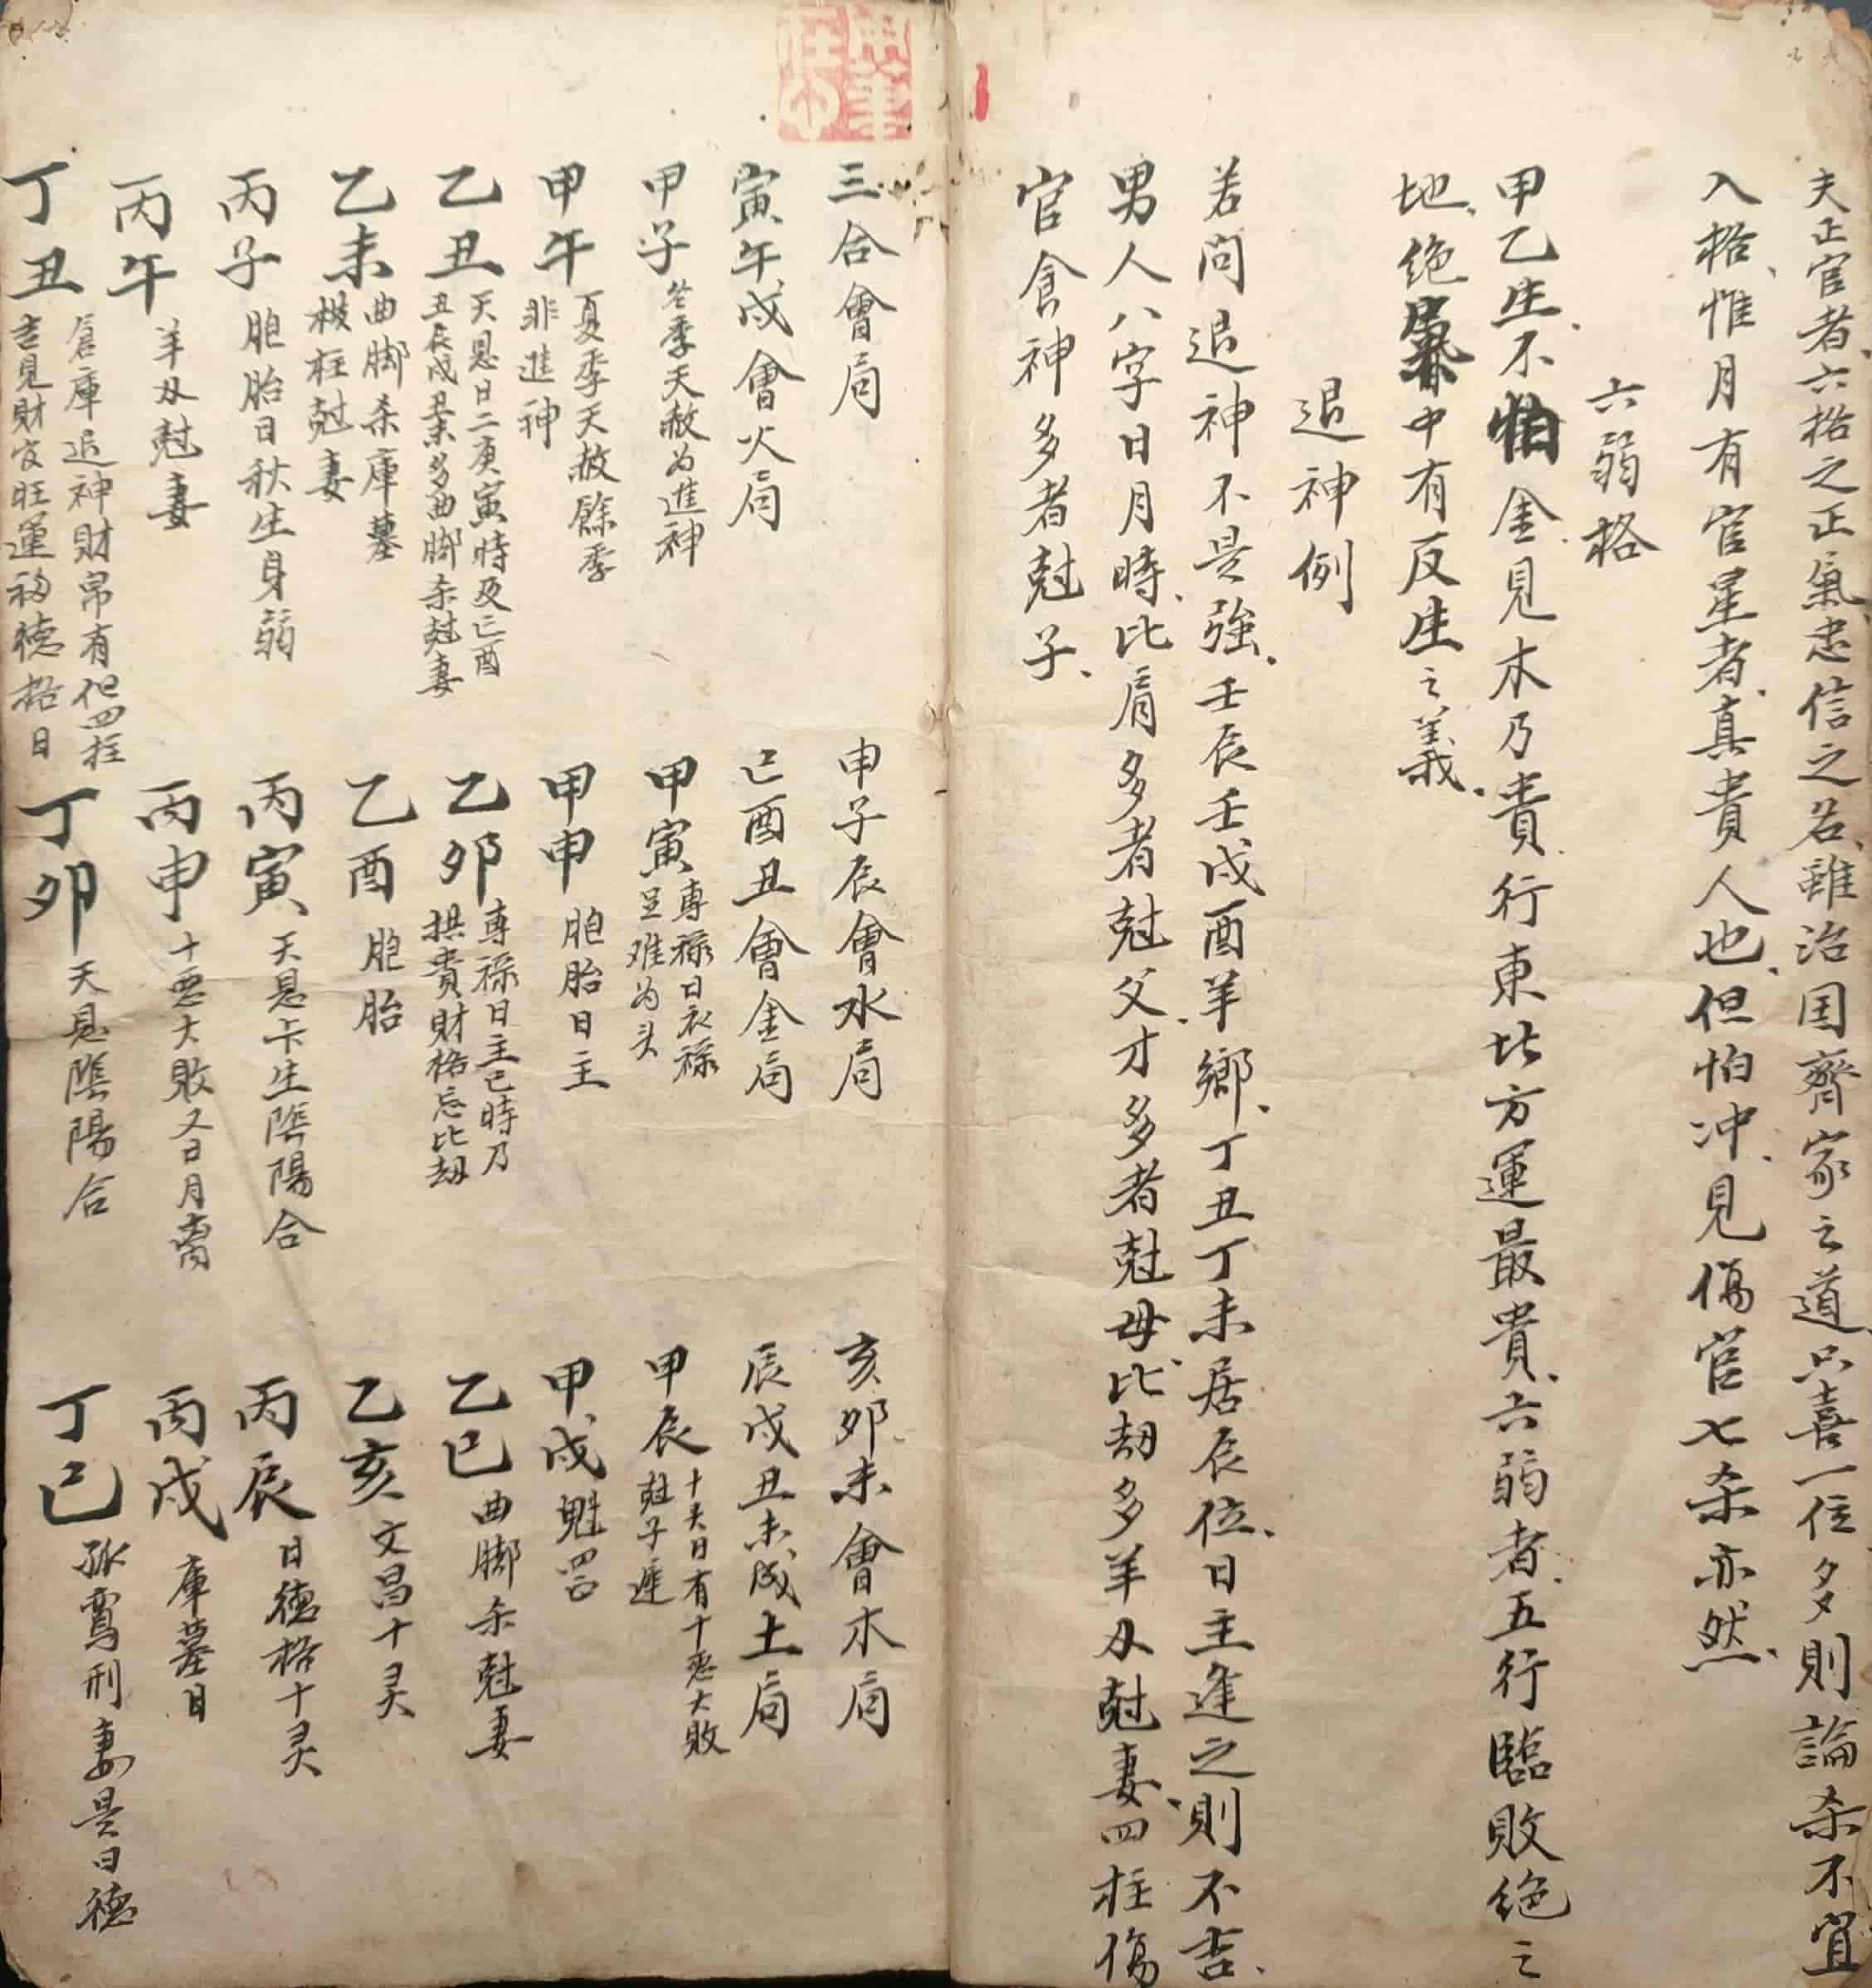 夫正官者六格之正氣忠信之名雖治国齊家之道只喜一位多則論杀不宜
入格惟月有官星者真貴人也但怕冲見傷官七杀亦然
六弱格
甲乙生不怕金見木乃貴行東北方運最貴六弱者五行臨敗絕之
地絕中有反生之義
退神例
若问退神不是強壬辰壬戌酉羊鄉丁丑丁未居辰位日主逢之則不吉
男人八字日月時比肩多者尅父才多者尅母比劫多羊刃尅妻四柱傷
官食神多者尅子
三合會局
申子辰會水局
亥卯未會木局
寅午戌會火局
巳酉丑會金局
辰戌丑未成土局
甲子
冬季天赦为進神
甲寅
專祿日衣祿
呈难为头
甲辰
十灵日有十惡大敗
尅子遲
甲午
夏季天赦餘季
非進神
甲申
胞胎日主
甲戌
魁罡
乙丑
天恩日二庚寅時及巳酉
丑辰戌未多曲脚杀尅妻
乙卯
專祿日主巳時乃
拱貴財格忌比劫
乙巳
曲脚杀尅妻
乙未
曲脚杀庫墓
柱尅妻
乙酉
胞胎
乙亥
文昌十灵
丙子
胞胎日秋生身弱
丙寅
天恩生陰陽合
丙辰
日德格十灵
丙午
羊刃尅妻
丙申
十惡大敗又日月
丙戌
庫墓日
丁丑
退神財帛有但四柱
吉見財官旺運福德格日
丁卯
天恩陰陽合
丁巳
孤鸾刑妻是日德